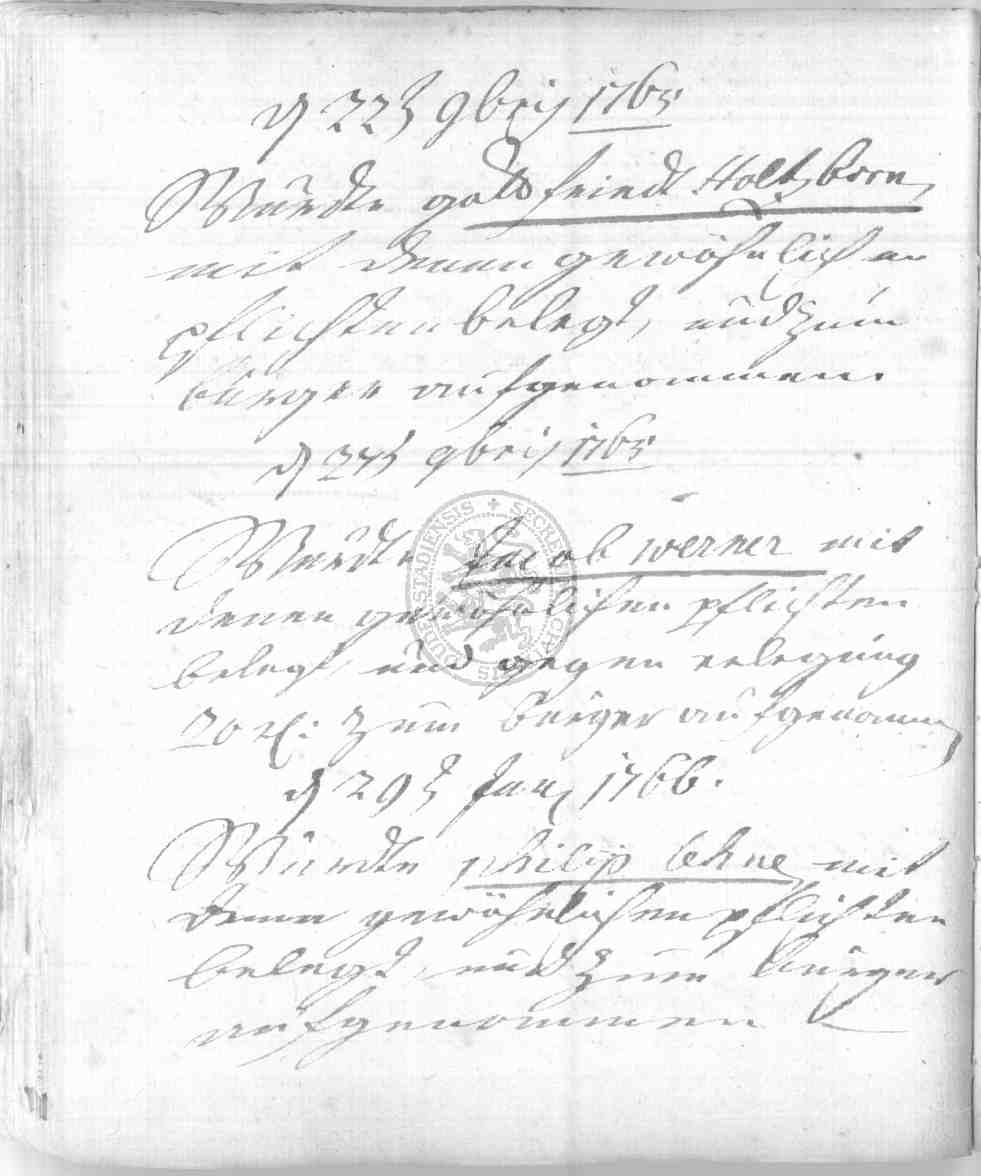 d 22t 9bris 1765
Wurde gottfriedt Holtzborn
mit denen gewöhnlichen
pflichten belegt, und zum
bürger aufgenommen.
d 27t 9bris 1765
Wurde Jacob werner mit
denen gewöhnlichen pflichten
belegt und gegen erlegung
20 rt: zum bürger aufgenommen
d 29t Jan 1766.
Wurde philip lehne mit
denen gewöhnlichen pflichten
belegt, und zum bürger
aufgenommen
SECRETUM CIVITATIS DUDERSTADIENSIS